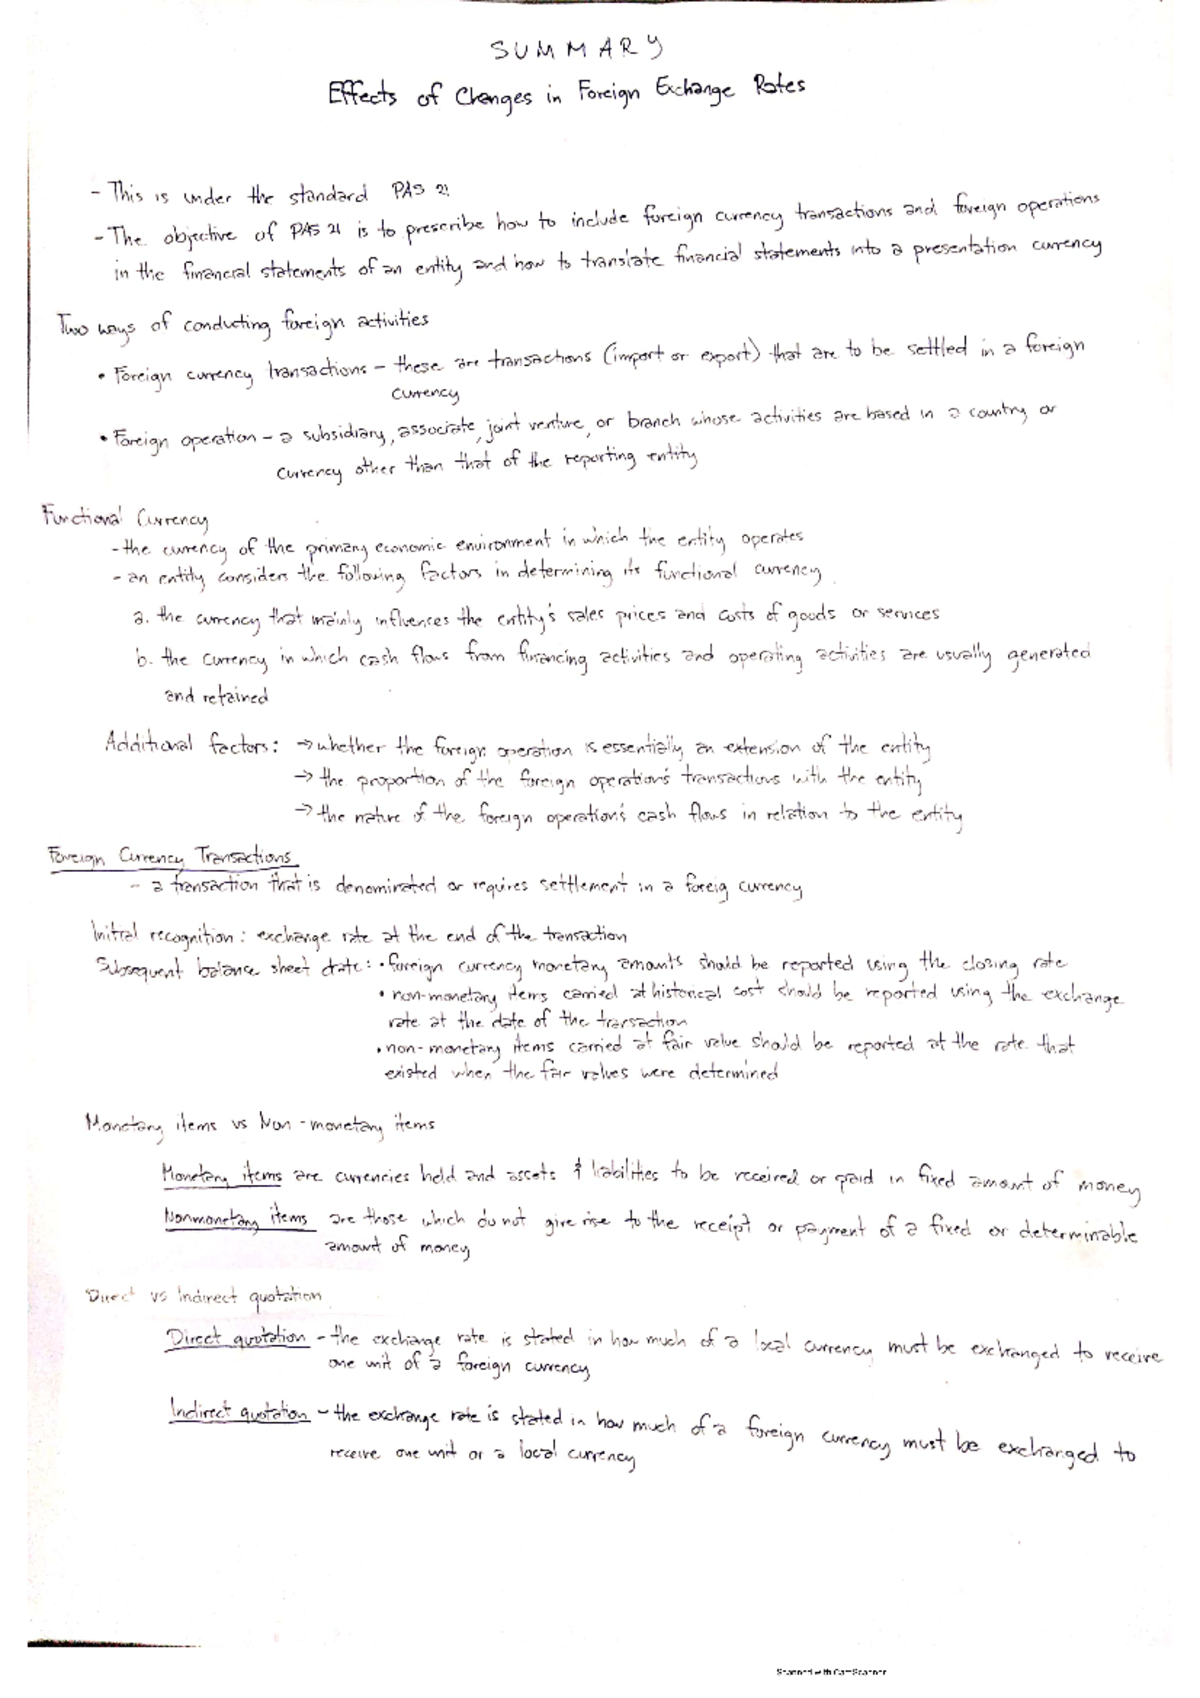 SUMMARY
Effects of Changes in Foreign Exchange Rates
- This is under the standard PAS 21
- The objective of PAS 21 is to prescribe how to include foreign currency transactions and foreign operations
in the financial statements of an entity and how to translate financial statements into a presentation currency
Two ways of conducting foreign activities
• Foreign currency transactions - these are transactions (import or export) that are to be settled in a foreign
currency
• Foreign operation - a subsidiary, associate, joint venture, or branch whose activities are based in a country or
currency other than that of the reporting entity
Functional Currency
- the currency of the primary economic environment in which the entity operates
- an entity considers the following factors in determining its functional currency
a. the currency that mainly influences the entity's sales prices and costs of goods or services
b. the currency in which cash flows from financing activities and operating activities are usually generated
and retained
Additional factors: → whether the foreign operation is essentially an extension of the entity
→ the proportion of the foreign operation's transactions with the entity
→ the nature of the foreign operation's cash flows in relation to the entity
Foreign Currency Transactions
- a transaction that is denominated or requires settlement in a foreig currency
Initial recognition: exchange rate at the end of the transaction
Subsequent balance sheet date: • foreign currency monetary amounts should be reported using the closing rate
• non-monetary items carried at historical cost should be reported using the exchange
rate at the date of the transaction
• non-monetary items carried at fair value should be reported at the rate that
existed when the fair values were determined
Monetary items vs Non-monetary items
Monetary items are currencies held and assets & liabilities to be received or paid in fixed amount of money
Nonmonetary items are those which do not give rise to the receipt or payment of a fixed or determinable
amount of money
Direct vs Indirect quotation
Direct quotation - the exchange rate is stated in how much of a local currency must be exchanged to receive
one unit of a foreign currency
Indirect quotation - the exchange rate is stated in how much of a foreign currency must be exchanged to
receive one unit or a local currency
Scanned with CamScanner